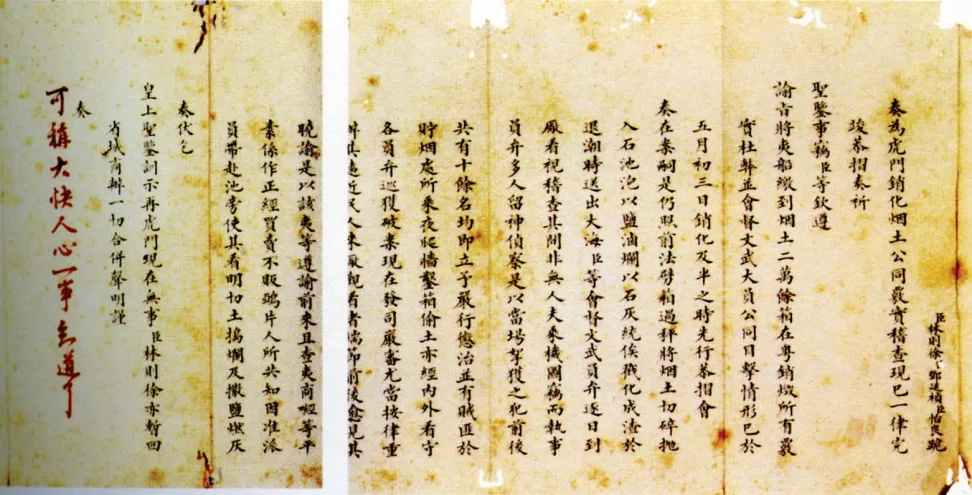 臣林則徐 鄧廷楨臣怡良跪
奏為虎門銷化烟土公同覈實稽查現已一律完
竣恭摺奏祈
聖鑒事竊臣等欽遵
諭旨將夷船繳到烟土二萬餘箱在粵銷燬所有覈
實杜弊並會督文武大員公同目擊情形已於
五月初三日銷化及半之時先行恭摺會
奏在案嗣是仍照前法劈箱過秤將烟土切碎拋
入石池泡以鹽滷爛以石灰統俟戕化成渣於
退潮時送出大海臣等會督文武員弁逐日到
廠看視稽查其間非無人夫乘機圖竊而執事
員弁多人留神偵察是以當場拏獲之犯前後
共有十餘名均即立予嚴行懲治並有賊匪於
貯烟處所乘夜爬牆鑿箱偷土亦經內外看守
各員弁巡獲破案現在發司嚴審尤當按律重
辦其遠近民人來廠觀看者端節前後愈見其
曉諭是以該夷等遵諭前來且查夷商嘅等平
素係作正經買賣不販鴉片人所共知因准派
員帶赴池旁使其看明切土搗爛及撒鹽燃灰
奏伏乞
皇上聖鑒訓示再虎門現在無事臣林則徐亦暫回
省城商辦一切合併聲明謹
奏
可稱大快人心一事知道了